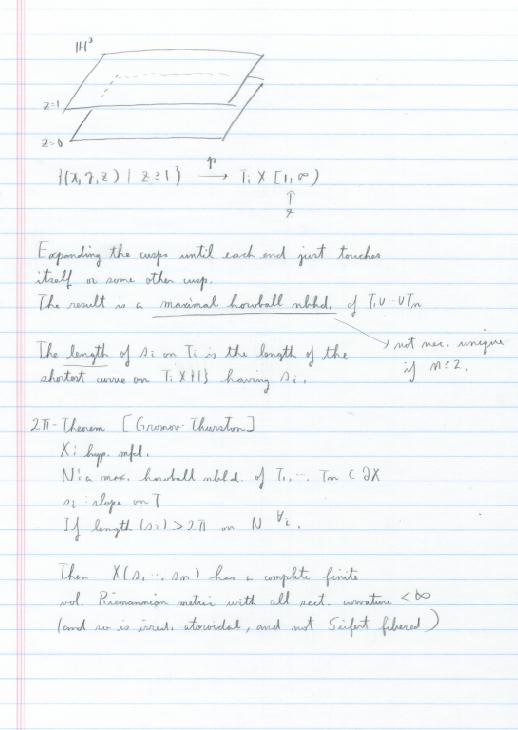 IH³
z=1
z=0
{(x,y,z) | z≥1} →p Ti × [1,∞)
↑
z
Expanding the cusps until each end just touches
itself or some other cusp.
The result is a maximal horoball nbhd. of T1 ∪ ‑ ∪ Tn
→ not nec. unique
if n≥2.
The length of si on Ti is the length of the
shortest curve on Ti × {1} having si.
2π-Theorem [Gromov-Thurston]
X: hyp. mfd.
N: a max. horoball nbhd. of T1, ... Tn ⊂ ∂X
si : slope on T
If length (si) > 2π on N ∀i.
Then X(s1, ..., sn) has a complete finite
vol. Riemannian metric with all sect. curvature <
(and so is irred. atoroidal, and not Seifert fibered)